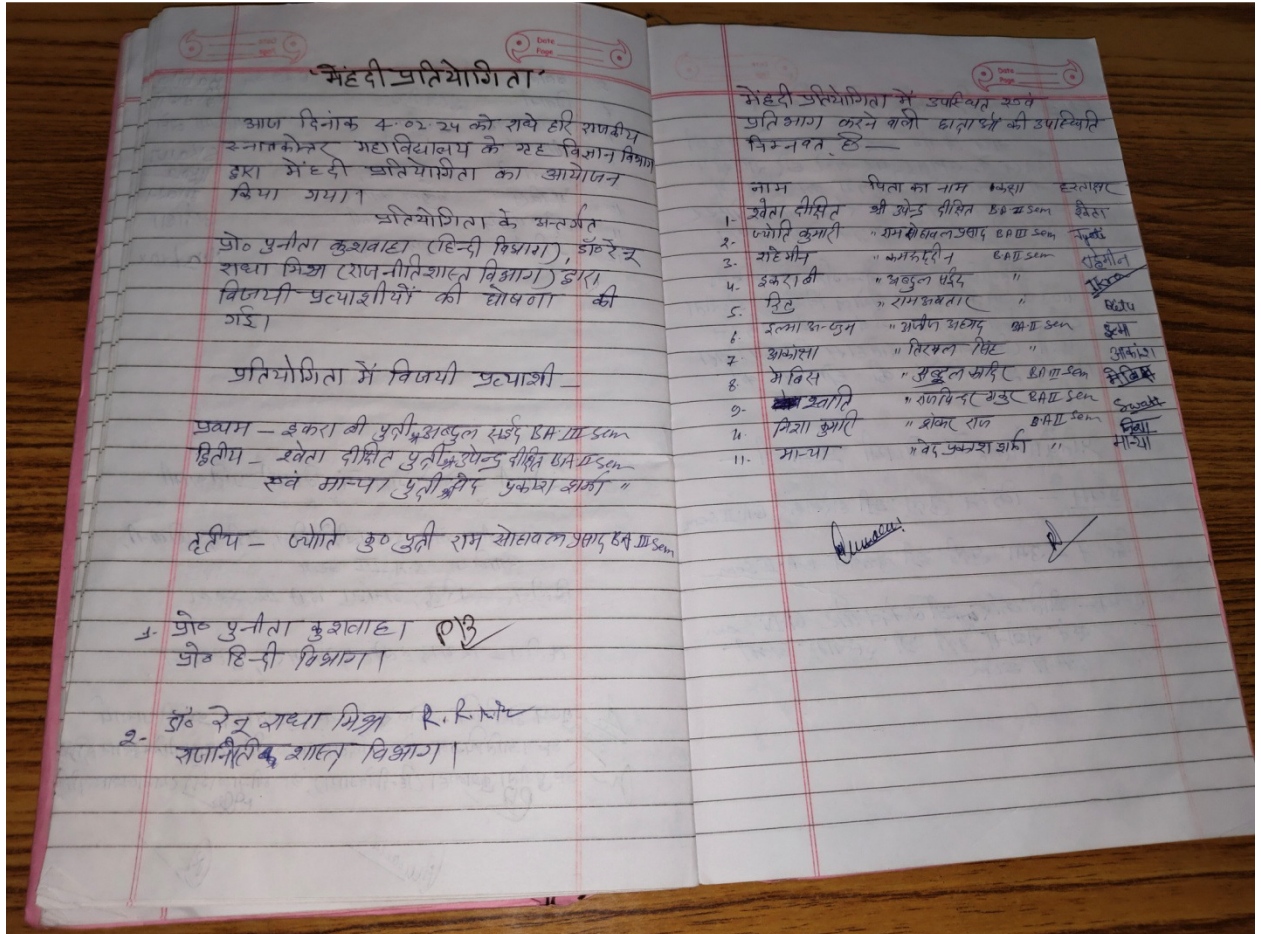 Date
Page
"मेंहदी प्रतियोगिता"
आज दिनांक 4.02.24 को राधे हरि राजकीय
स्नातकोत्तर महाविद्यालय के गृह विज्ञान विभाग
द्वारा मेंहदी प्रतियोगिता का आयोजन
किया गया।
प्रतियोगिता के अन्तर्गत
प्रो० पुनीता कुशवाहा (हिन्दी विभाग), डॉ० रेनू
राधा मिश्रा (राजनीतिशास्त्र विभाग) द्वारा
विजयी प्रत्याशीयों की घोषणा की
गई।
प्रतियोगिता में विजयी प्रत्याशी –
प्रथम – इकरा बी पुत्री अब्दुल सईद BA III Sem
द्वितीय – श्वेता दीक्षित पुत्री उपेन्द्र दीक्षित BA II Sem
एवं मान्या पुत्री वेद प्रकाश शर्मा "
तृतीय – ज्योति कु० पुत्री राम सोहावल प्रसाद BA III Sem
1- प्रो० पुनीता कुशवाहा
प्रो० हिन्दी विभाग।
2- डॉ० रेनू राधा मिश्रा R. R. Mishra
राजनीतिक शास्त्र विभाग।
Date
Page
मेंहदी प्रतियोगिता में उपस्थित एवं
प्रतिभाग करने वाली छात्राओं की उपस्थिति
निम्नवत् है —
नाम पिता का नाम कक्षा हस्ताक्षर
1- श्वेता दीक्षित श्री उपेन्द्र दीक्षित BA II Sem श्वेता
2- ज्योति कुमारी " राम सोहावल प्रसाद BA III Sem Jyoti
3- राहेमीन " कमरुद्दीन BA II Sem राहेमीन
4- इकरा बी " अब्दुल सईद " Ikra
5- रितु " राम अवतार " Ritu
6- इल्मा अन्जुम " अजीज अहमद BA-II Sem इल्मा
7- आकांक्षा " सिंह " आकांक्षा
8- मेविस " अब्दुल कादिर BA III Sem मेविस
9- स्वाति BA II Sem Swati
11- निशा कुमारी " शंकर राज BA II Sem निशा
11- मान्या " वेद प्रकाश शर्मा " मान्या